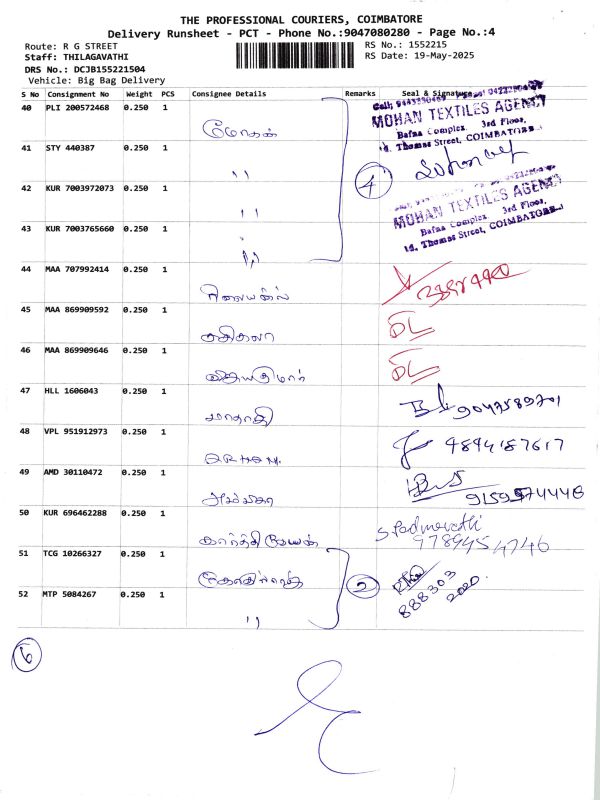 THE PROFESSIONAL COURIERS, COIMBATORE
Delivery Runsheet - PCT - Phone No.:9047080280 - Page No.:4
Route: R G STREET
RS No.: 1552215
Staff: THILAGAVATHI
RS Date: 19-May-2025
DRS No.: DCJB155221504
Vehicle: Big Bag Delivery
S No Consignment No Weight PCS Consignee Details Remarks Seal & Signature
40 PLI 200572468 0.250 1 மோகன்
MOHAN TEXTILES AGENCY
Bafna Complex 3rd Floor,
Thomas Street, COIMBATORE
41 STY 440387 0.250 1 ,,
4
42 KUR 7003972073 0.250 1 ,,
MOHAN TEXTILES AGENCY
Bafna Complex 3rd Floor,
Thomas Street, COIMBATORE
43 KUR 7003765660 0.250 1 ,,
44 MAA 707992414 0.250 1
45 MAA 869909592 0.250 1 சசிகலா
46 MAA 869909646 0.250 1 ஜெயகுமார்
47 HLL 1606043 0.250 1
48 VPL 951912973 0.250 1 9894187617
49 AMD 30110472 0.250 1 அம்பிகா
50 KUR 696462288 0.250 1 கார்த்திகேயன் S Padmavathi
9789454746
51 TCG 10266327 0.250 1 2
888303
52 MTP 5084267 0.250 1 ,,
6